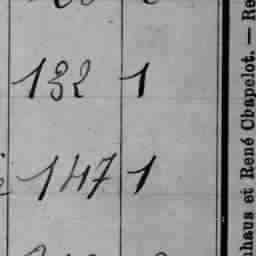 132 1
147 1
nhaus et René Chapelot. — Re